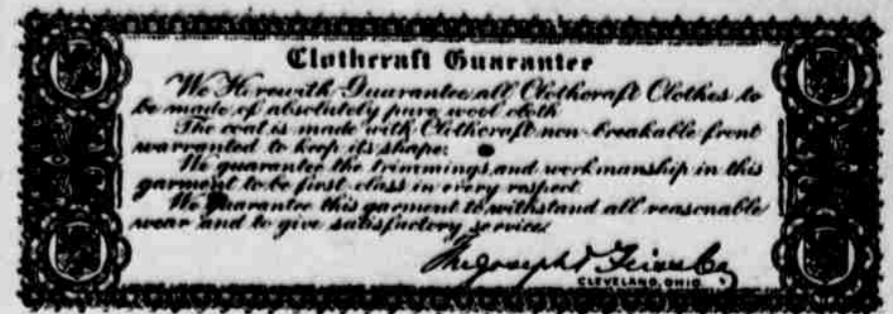 Clothcraft Guarantee
We Herewith Guarantee all Clothcraft Clothes to
be made of absolutely pure wool cloth
The coat is made with Clothcraft non-breakable front
warranted to keep its shape.
We guarantee the trimmings and workmanship in this
garment to be first class in every respect
We guarantee this garment to withstand all reasonable
wear and to give satisfactory service.
The Joseph & Feiss Co
CLEVELAND, OHIO.